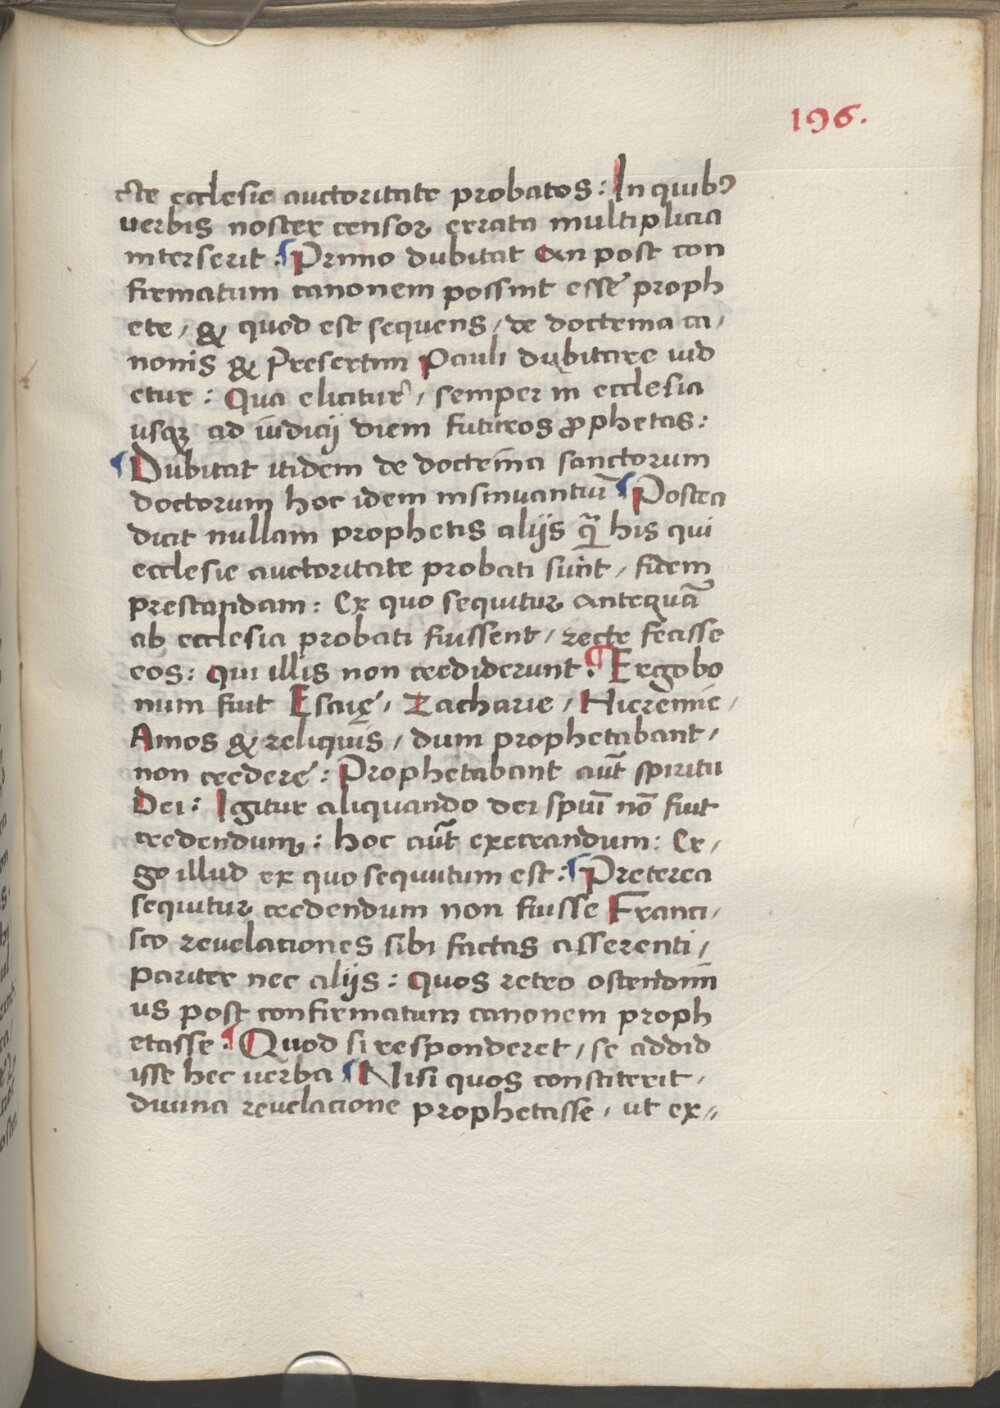 196.
cte ecclesie auctoritate probatos: In quibꝰ
uerbis noster censor errata multiplicia
interserit: Primo dubitat An post con
firmatum canonem possint esse proph
ete, & quod est sequens, de doctrina ca,
nonis & Presertim Pauli dubitare uid
etur: Qua elicitur, semper in ecclesia
usqꝫ ad iudicij diem futuros ꝓphetas:
Dubitat itidem de doctrina sanctorum
doctorum hoc idem insinuantiū Postea
dicit nullam prophetis alijs q̄ his qui
ecclesie auctoritate probati sunt, fidem
prestandam: Ex quo sequitur antequā
ab ecclesia probati fuissent, recte fecisse
eos: qui illis non crediderunt. Ergo bo
num fuit Esaię, Zacharie, Hieremie,
Amos & reliquis, dum prophetabant,
non credere: Prophetabant aūt spiritu
Dei: Igitur aliquando dei spūi nō fuit
credendum: hoc aūt execrandum: Er,
go illud ex quo sequutum est: Preterea
sequitur credendum non fuisse Franci,
sco reuelationes sibi factas asserenti,
pariter nec alijs: Quos retro ostendim
us post confirmatum canonem proph
etasse. Quod si responderet, se addid
isse hec uerba Nisi quos constiterit,
diuina reuelatione prophetasse, ut ex,,